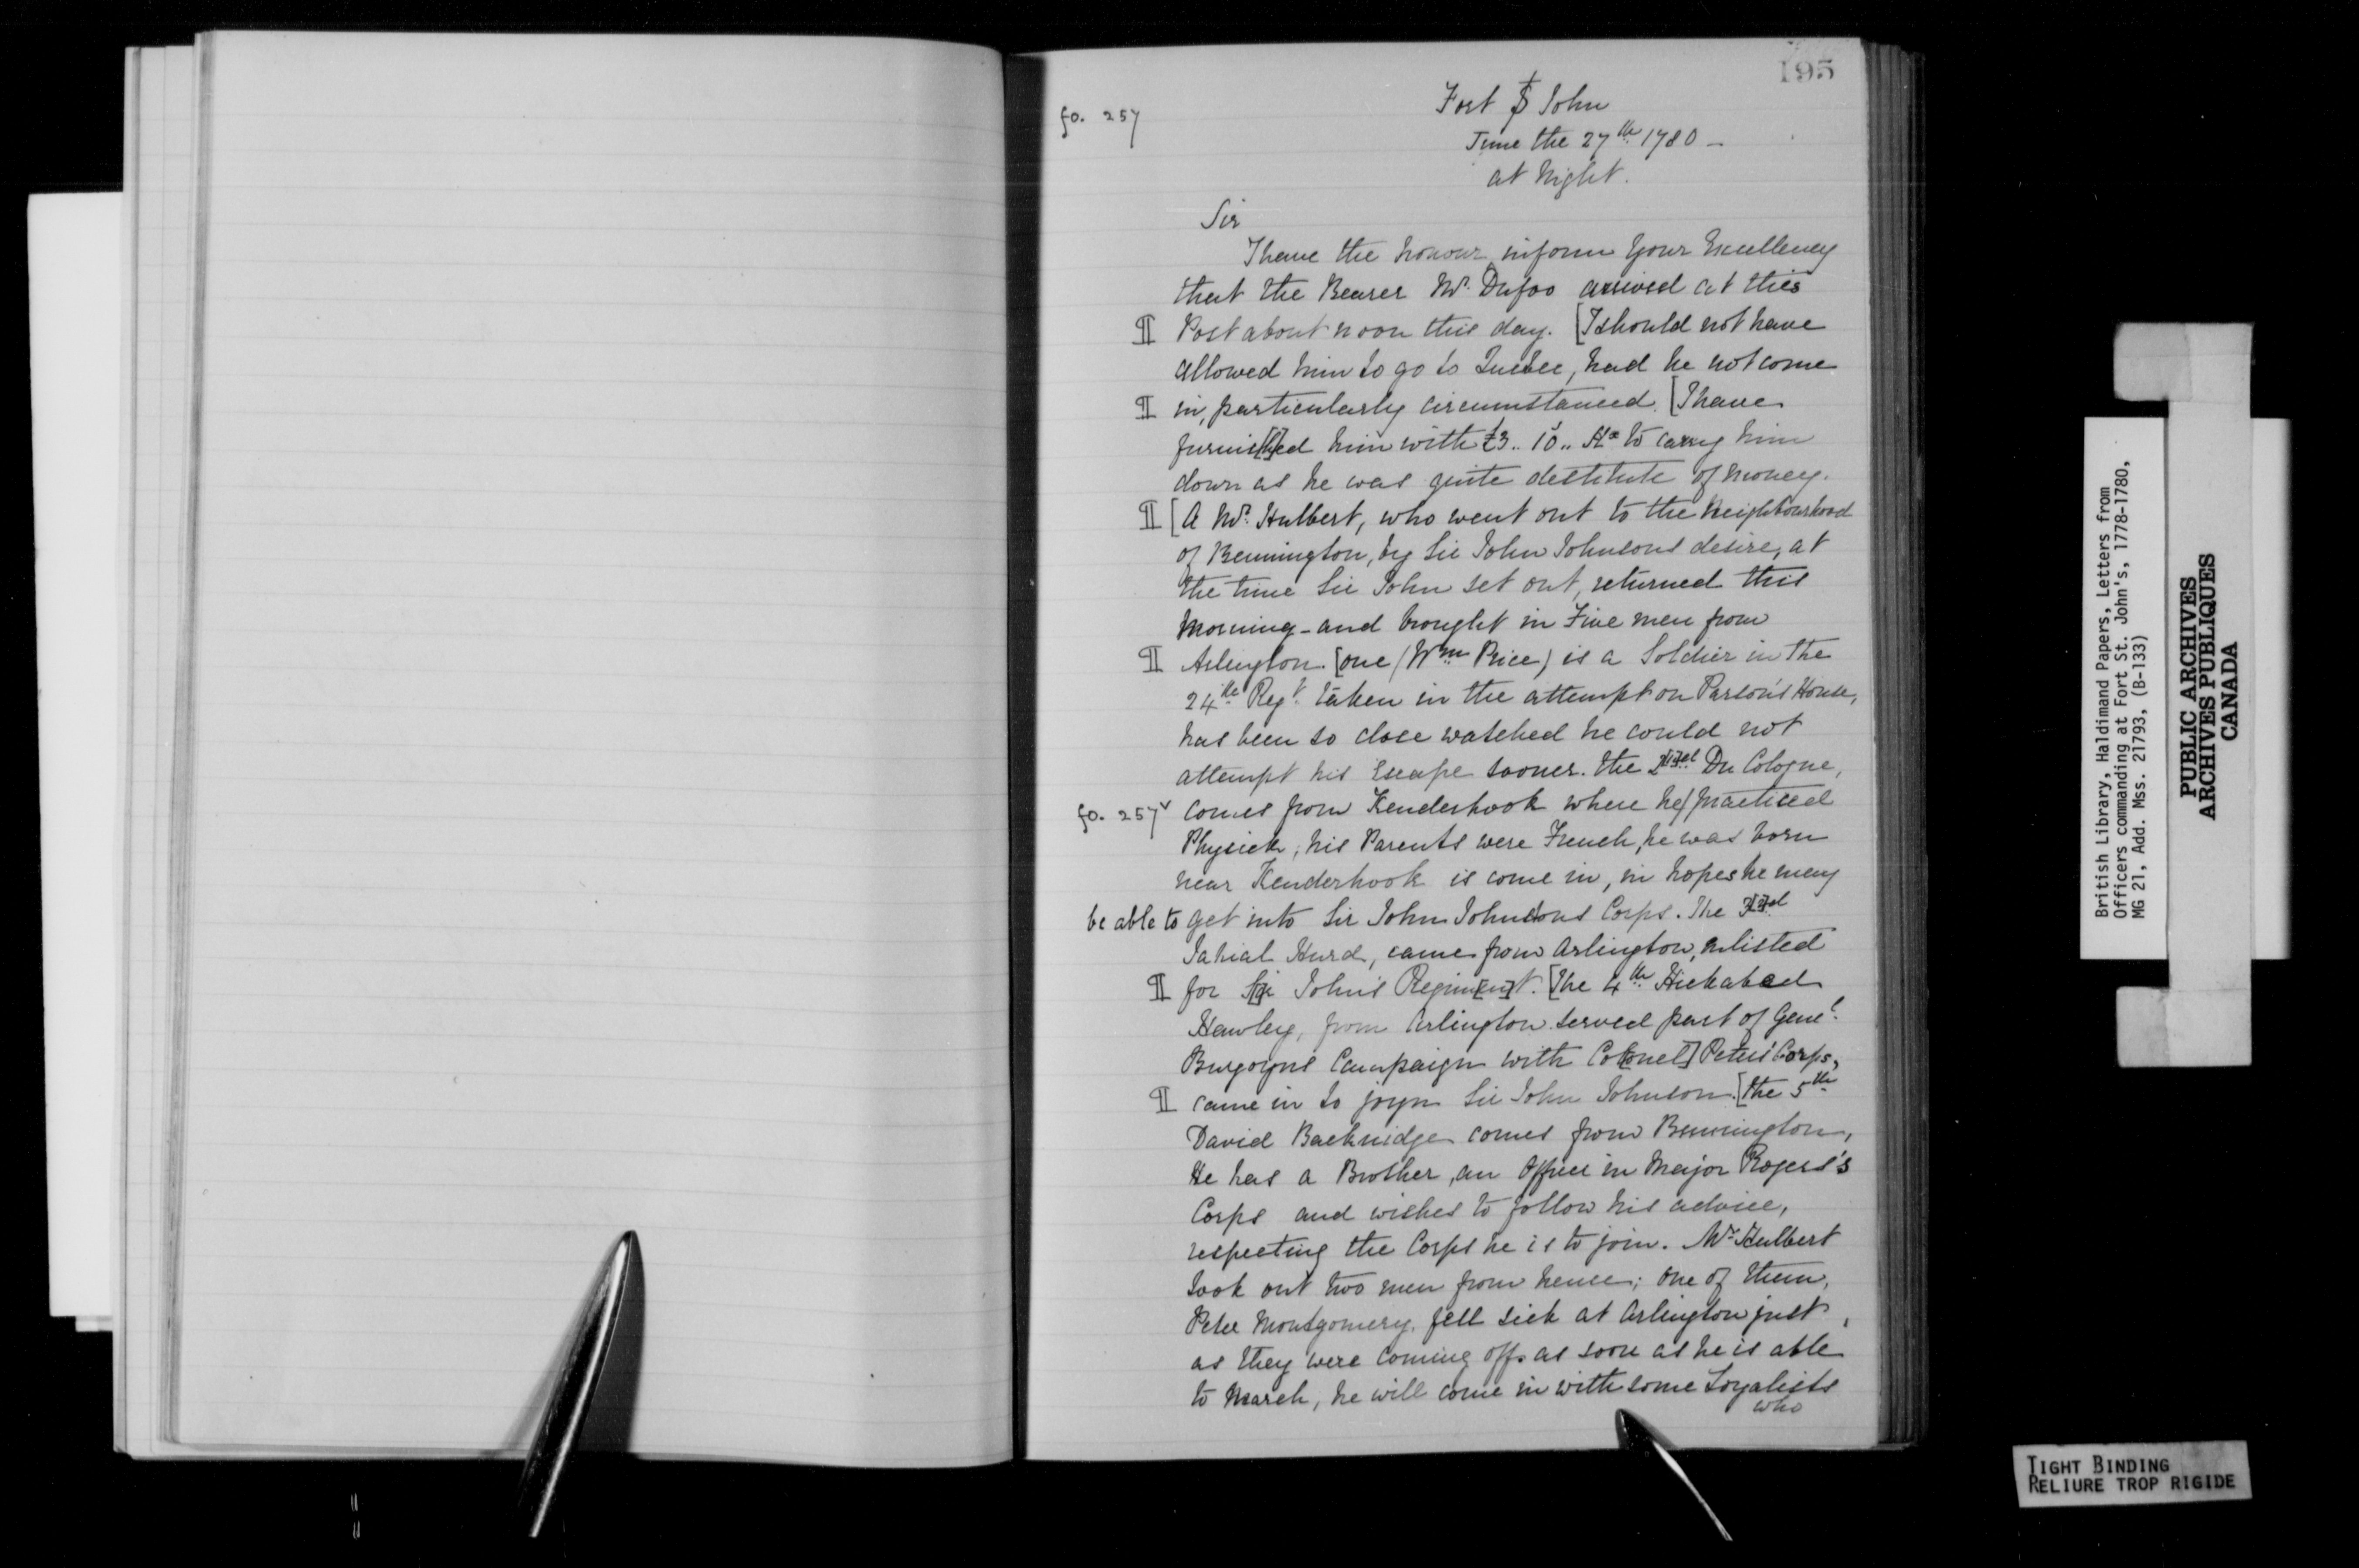 195
fo. 257
Fort St John
June the 27th 1780 -
at Night.
Sir
I have the honour inform Your Excellency
that the Bearer Mr. Dufoo arrived at this
¶ Post about noon this day. [I should not have
allowed him to go to Quebec, had he not come
¶ in, particularly circumstanced. [I have
furnis[h]ed him with £3.. 10.. Hx to carry him
down as he was quite destitute of money.
¶ [A Mr. Hulbert, who went out to the Neighbourhood
of Bennington, by Sir John Johnsons desire, at
the time Sir John set out, returned this
Morning - and brought in Five men from
¶ Arlington. [one (Wm Price) is a Soldier in the
24th Regt. taken in the attempt on Parson's House,
has been so close watched he could not
attempt his Escape sooner. the 2[n]d Du Cologne,
fo. 257v comes from Kenderhook where he practiced
Physick, his Parents were French, he was born
near Kenderhook is come in, in hopes he may
be able to get into Sir John Johnsons Corps. The 3[r]d
Jahial Hurd, came from Arlington, enlisted
¶ for S[i]r John's Regim[en]t. [The 4th Hickabod
Hawley, from Arlington served part of Genel.
Burgoyns Campaign with Co[lonel] Peters' Corps,
¶ came in to joyn Sir John Johnson. [the 5th
David Backnidge comes from Bennington,
He has a Brother, an Officer in Major Rogers's
Corps and wishes to follow his advice,
respecting the Corps he is to join. Mr Hulbert
took out two men from hence; one of them,
Peter Montgomery. fell sick at Arlington just,
as they were coming off. as soon as he is able
to March, he will come in with some Loyalists
who
British Library, Haldimand Papers, Letters from
Officers commanding at Fort St. John's, 1778-1780,
MG 21, Add. Mss. 21793, (B-133)
PUBLIC ARCHIVES
ARCHIVES PUBLIQUES
CANADA
TIGHT BINDING
RELIURE TROP RIGIDE